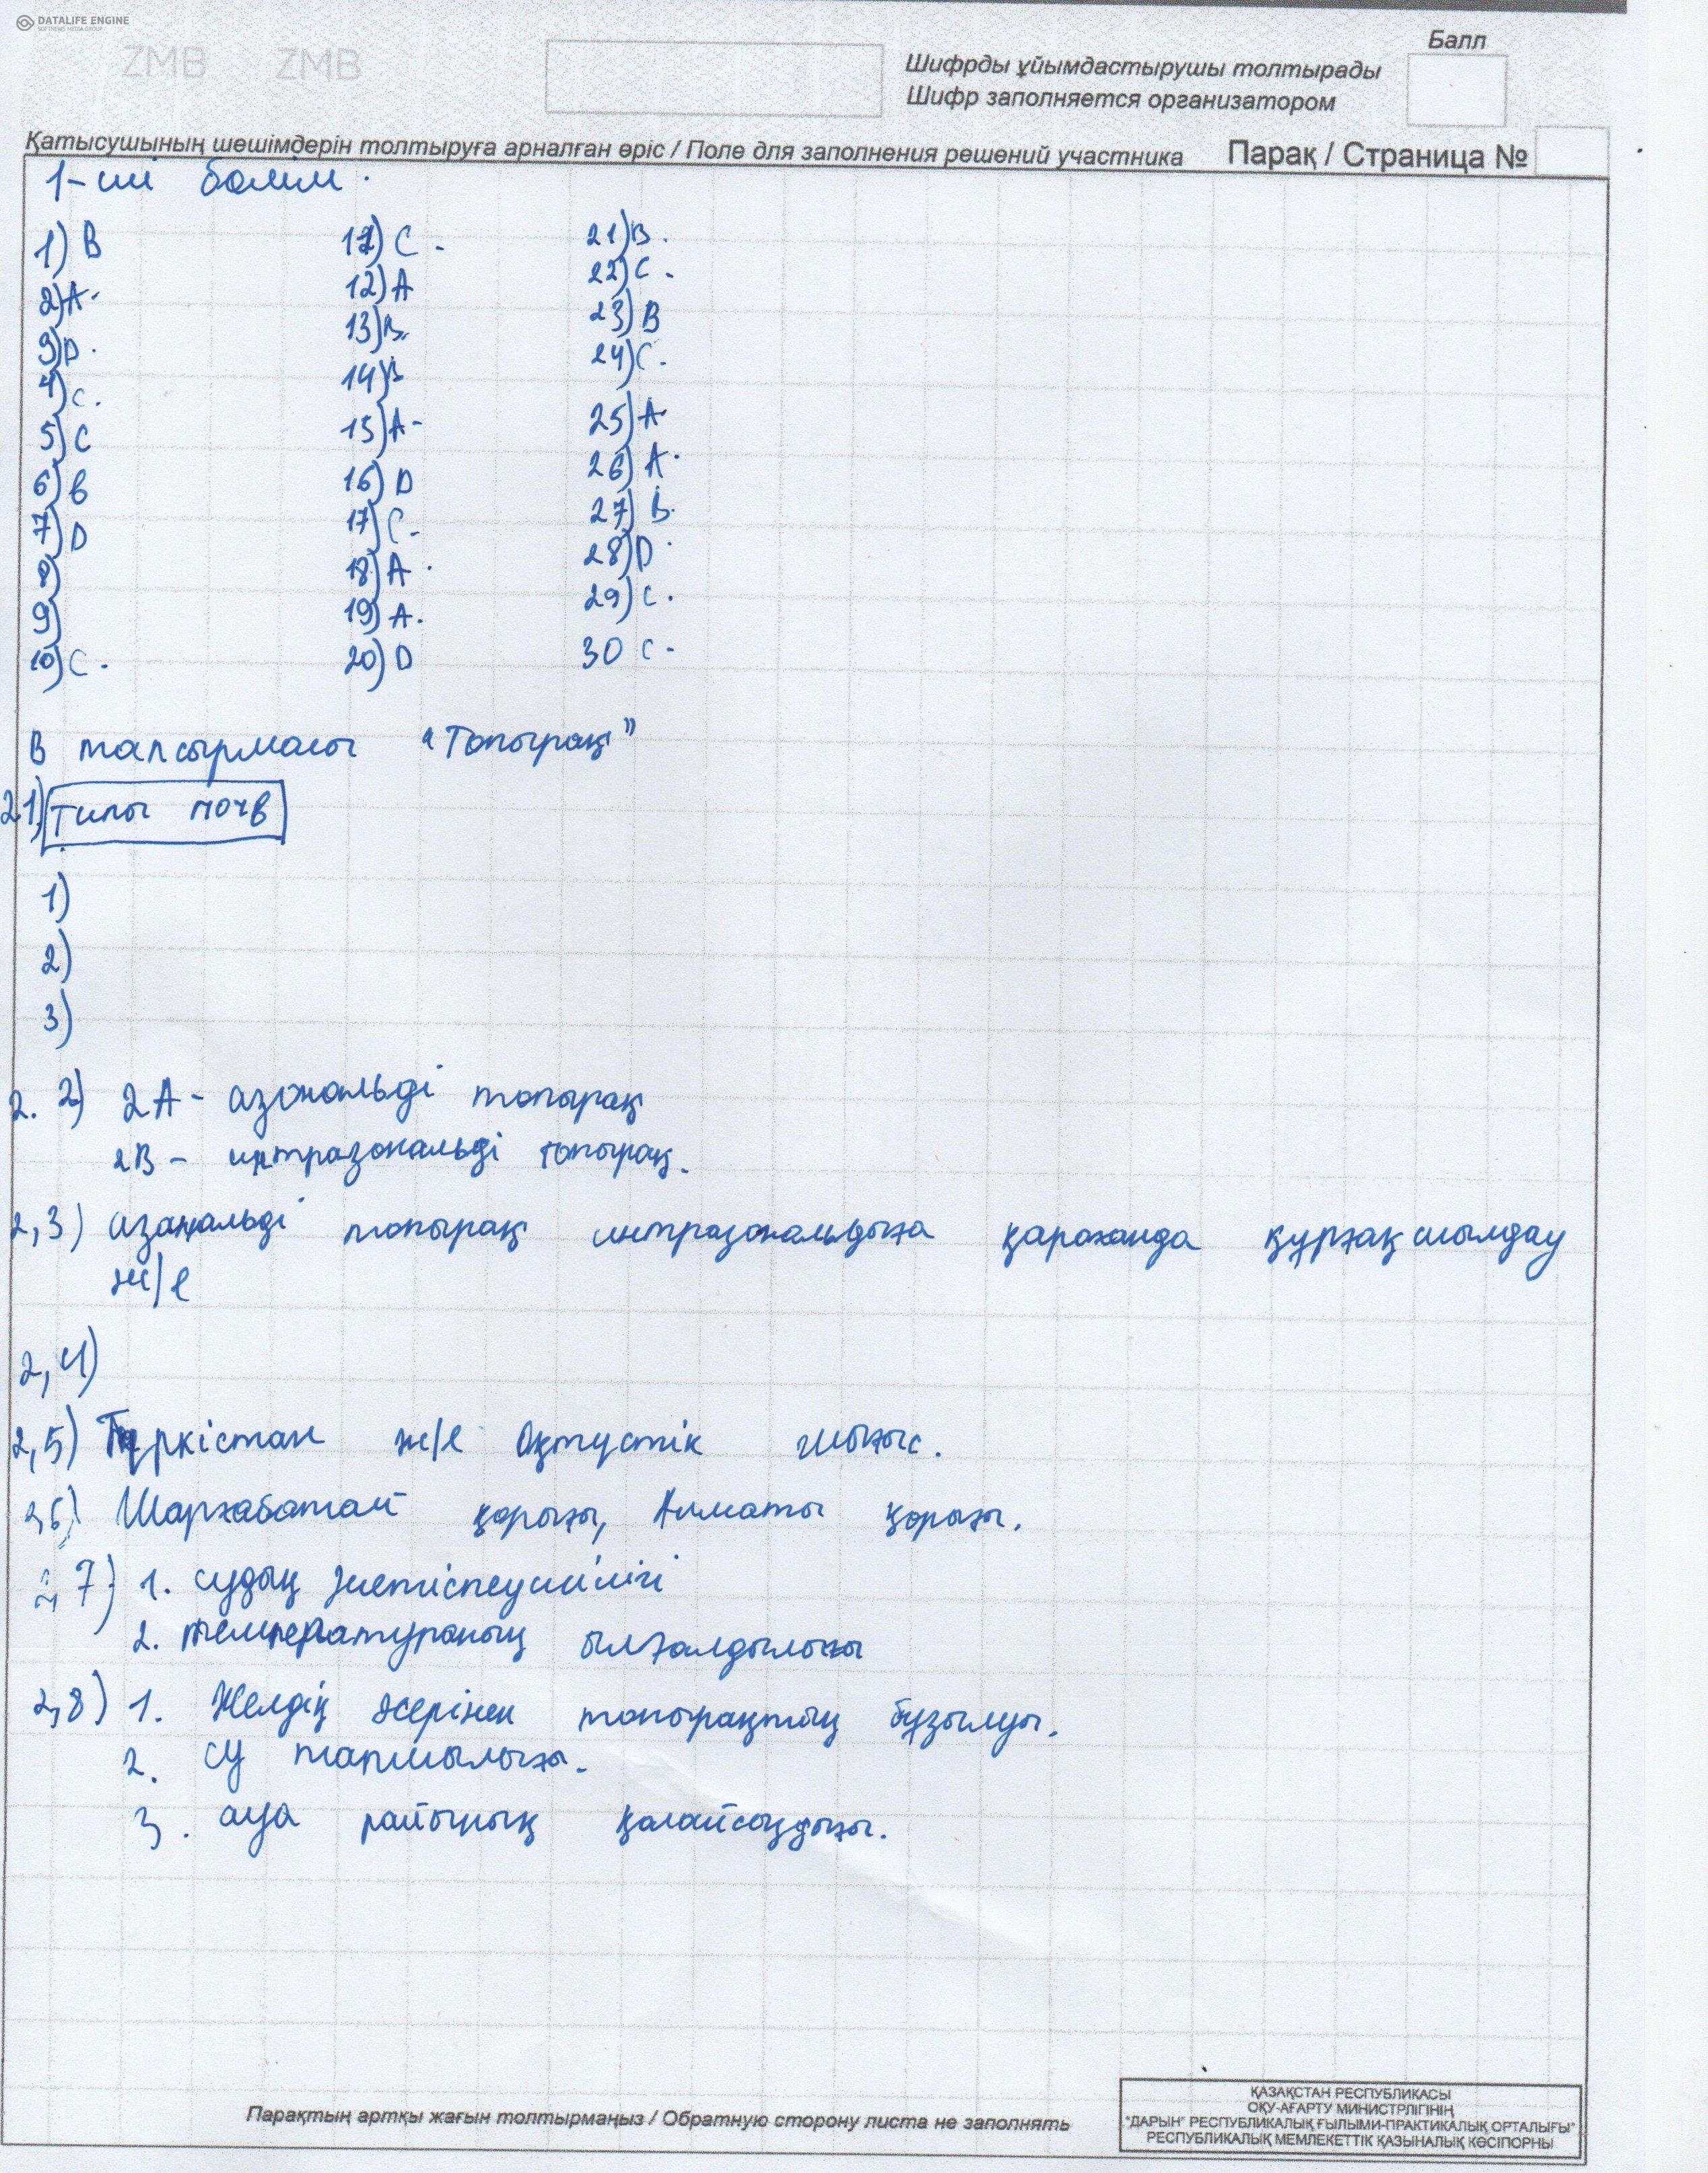 DATALIFE ENGINE
SOFTNEWS MEDIA GROUP
ZMB ZMB
Балл
Шифрды ұйымдастырушы толтырады
Шифр заполняется организатором
Қатысушының шешімдерін толтыруға арналған өріс / Поле для заполнения решений участника
Парақ / Страница №
1-ші бөлім.
1) B
2) A.
3) D.
4) C.
5) C
6) B
7) D
8)
9)
10) C.
11) C.
12) A
13) B.
14) B
15) A-
16) D
17) C.
18) A.
19) A.
20) D
21) B.
22) C.
23) B
24) C.
25) A.
26) A.
27) B.
28) D.
29) C.
30 C.
В тапсырмасы "Топырақ"
2.1) Типы почв
1)
2)
3)
2. 2) 2A- азональді топырақ
2B - интразональді топырақ.
2,3) азональді топырақ интразональдыға қарағанда құрғақшылдау
ж/е
2,4)
2,5) Түркістан ж/е Оңтүстік шығыс.
2,6) қорығы, Алматы қорығы.
2,7) 1. судың жетіспеушілігі
2. температураның ылғалдылығы
2,8) 1. Желдің әсерінен топырақтың бұзылуы.
2. су тапшылығы.
3. ауа райының қолайсыздығы.
Парақтың артқы жағын толтырмаңыз / Обратную сторону листа не заполнять
ҚАЗАҚСТАН РЕСПУБЛИКАСЫ
ОҚУ-АҒАРТУ МИНИСТРЛІГІНІҢ
"ДАРЫН" РЕСПУБЛИКАЛЫҚ ҒЫЛЫМИ-ПРАКТИКАЛЫҚ ОРТАЛЫҒЫ"
РЕСПУБЛИКАЛЫҚ МЕМЛЕКЕТТІК ҚАЗЫНАЛЫҚ КӘСІПОРНЫ